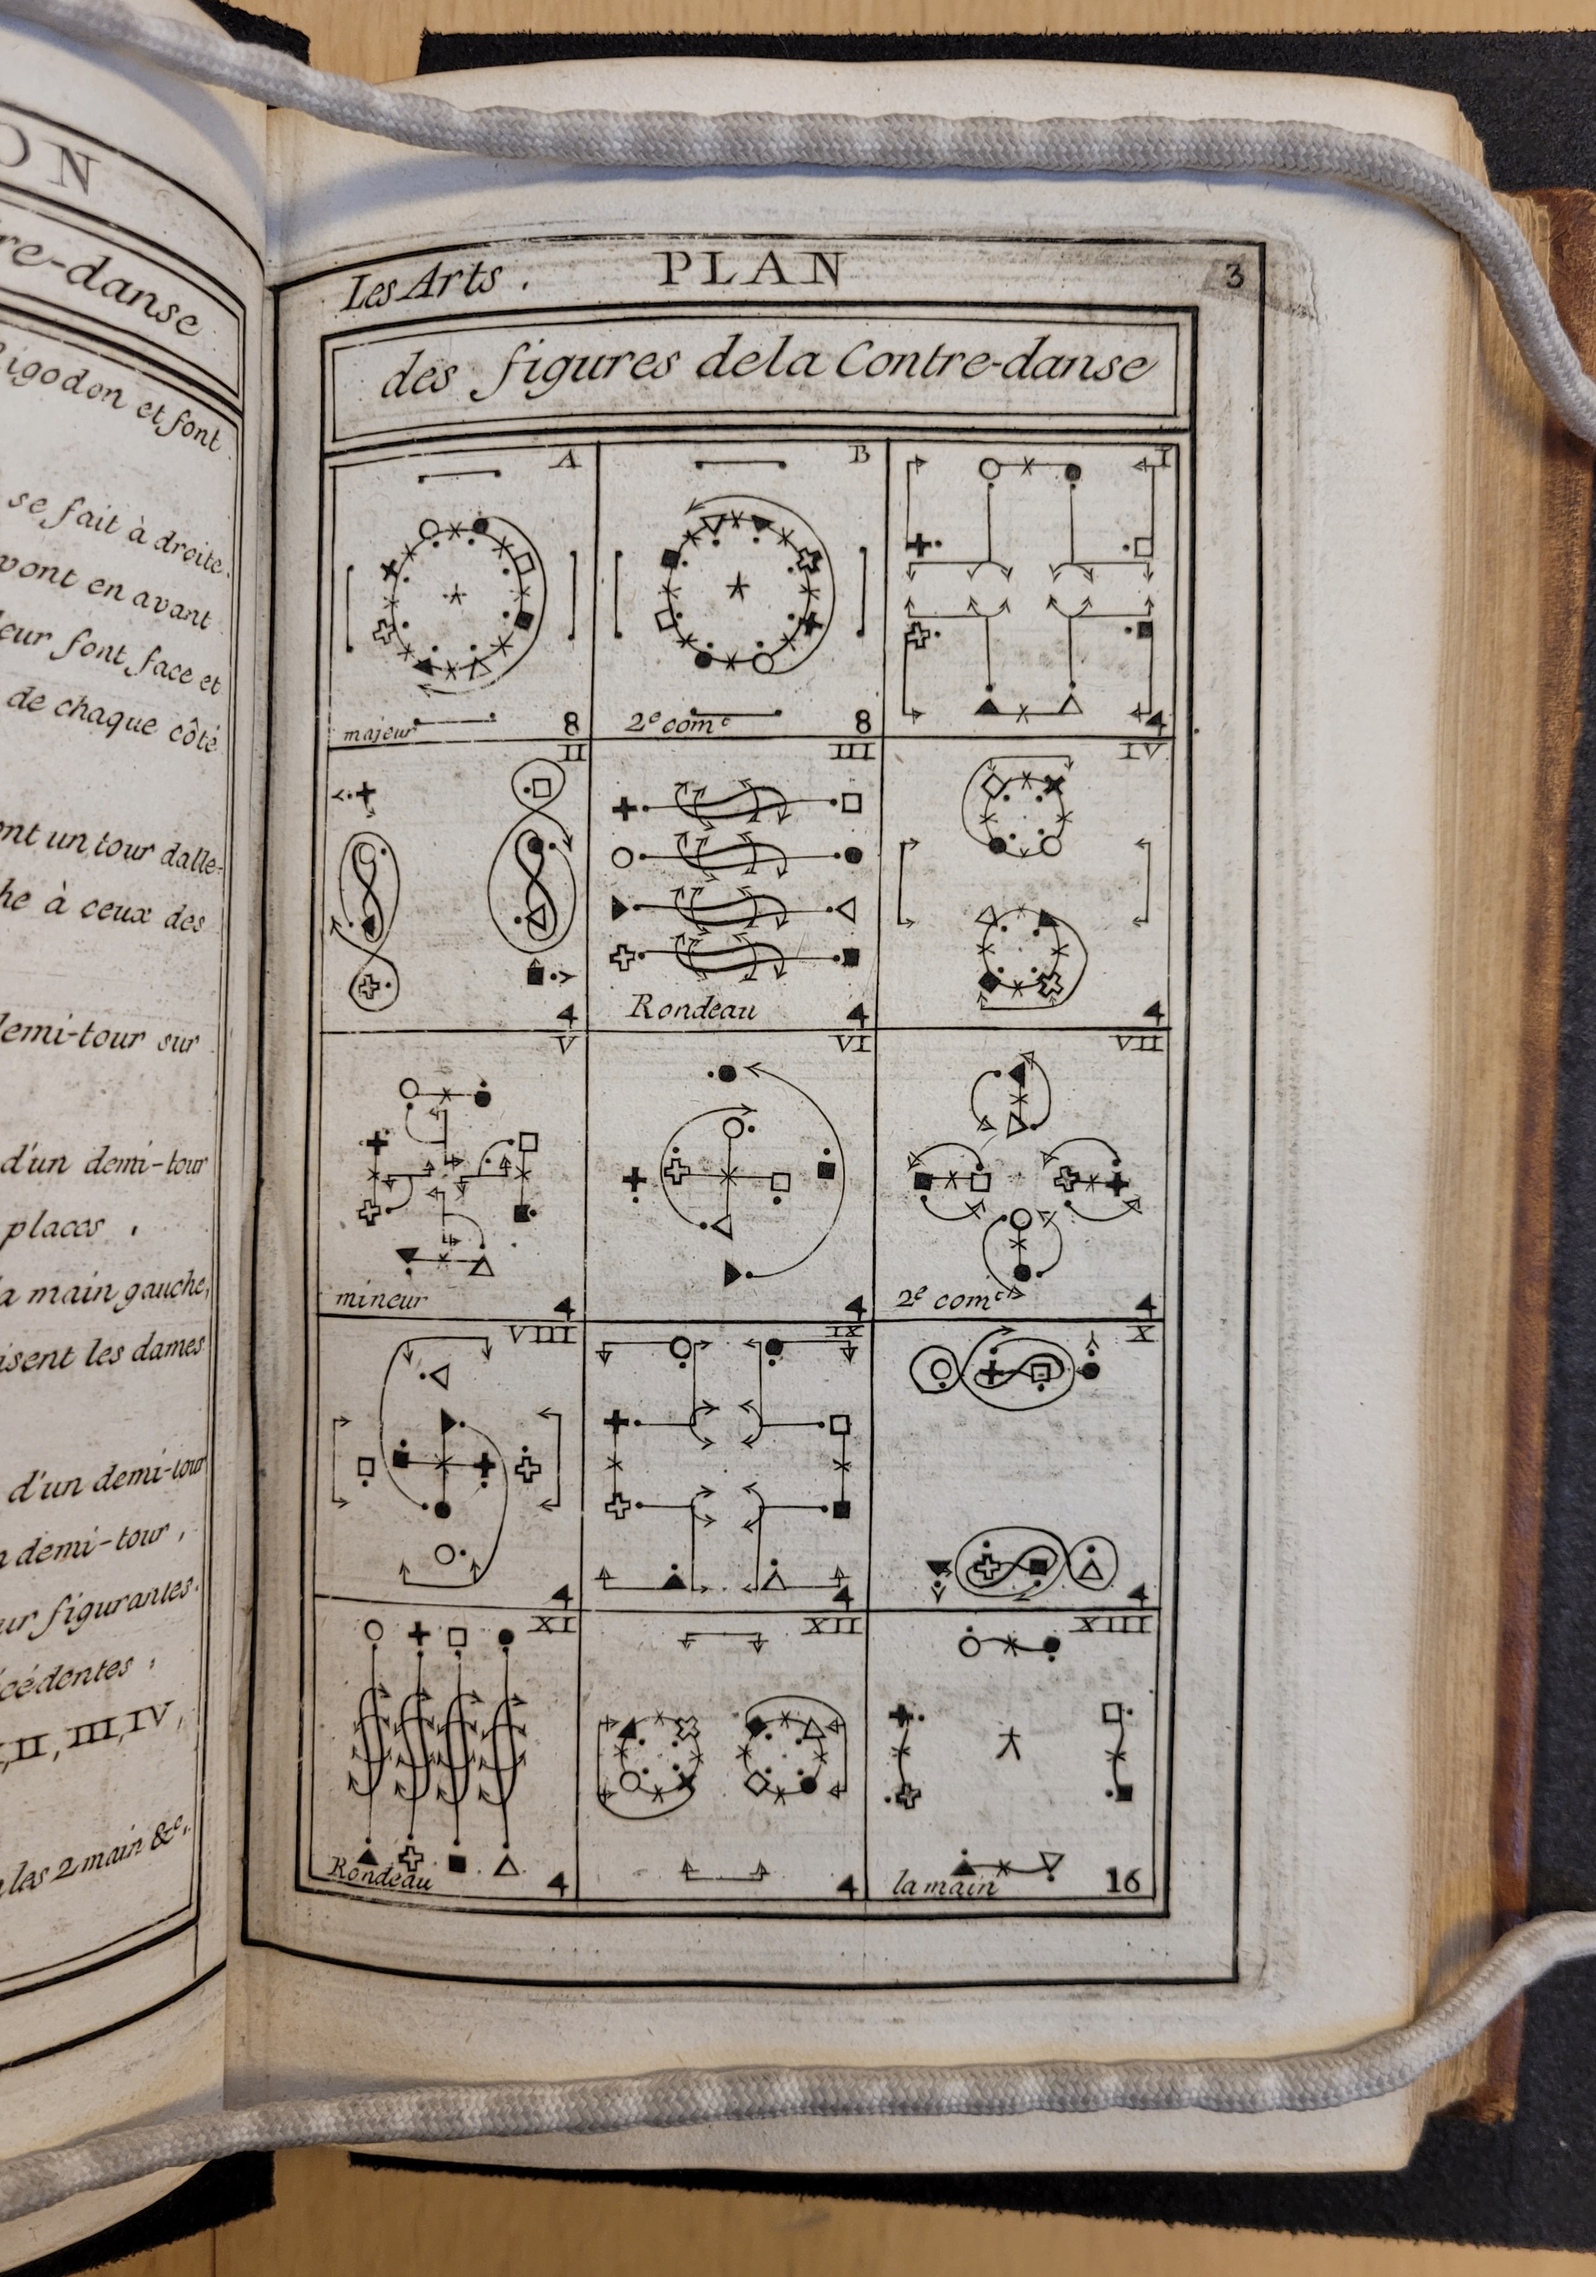 ON
re-danse
igodon et font
se fait à droite.
vont en avant
eur font face et
de chaque côté
ont un tour dalle-
he à ceux des
demi-tour sur
d'un demi-tour
places.
la main gauche,
isent les dames
d'un demi-tour
n demi-tour,
ur figurantes.
écédentes,
II, III, IV,
les 2 main &c.
Les Arts. PLAN 3
des figures de la Contre-danse
A B I
majeur 8 2e comc 8 4
II III IV
4 Rondeau 4 4
V VI VII
mineur 4 4 2e comc 4
VIII IX X
4 4 4
XI XII XIII
Rondeau 4 4 la main 16